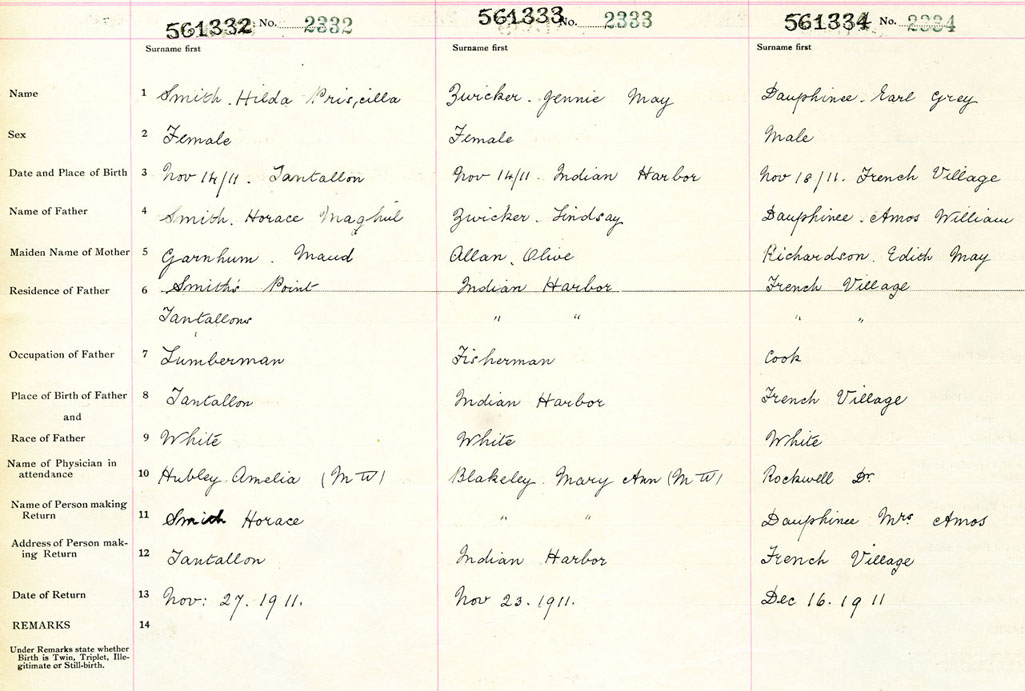 561332 No. 2332 561333 No. 2333 561334 No. 2334
Surname first Surname first Surname first
Name 1 Smith. Hilda Priscilla Zwicker. Jennie May Dauphinee. Earl Grey
Sex 2 Female Female Male
Date and Place of Birth 3 Nov 14/11. Tantallon Nov 14/11. Indian Harbor Nov 18/11. French Village
Name of Father 4 Smith. Horace Zwicker. Lindsay Dauphinee. Amos William
Maiden Name of Mother 5 Garnhum. Maud Allan, Olive Richardson. Edith May
Residence of Father 6 Smith's Point Indian Harbor French Village
Tantallons " " " "
Occupation of Father 7 Lumberman Fisherman Cook
Place of Birth of Father 8 Tantallon Indian Harbor French Village
and
Race of Father 9 White White White
Name of Physician in
attendance 10 Hubley Amelia (M W) Blakeley. Mary Ann (M W) Rockwell Dr.
Name of Person making
Return 11 Smith Horace " " Dauphinee Mrs Amos
Address of Person mak-
ing Return 12 Tantallon Indian Harbor French Village
Date of Return 13 Nov: 27. 1911. Nov 23. 1911. Dec 16. 1911
REMARKS 14
Under Remarks state whether
Birth is Twin, Triplet, Ille-
gitimate or Still-birth.